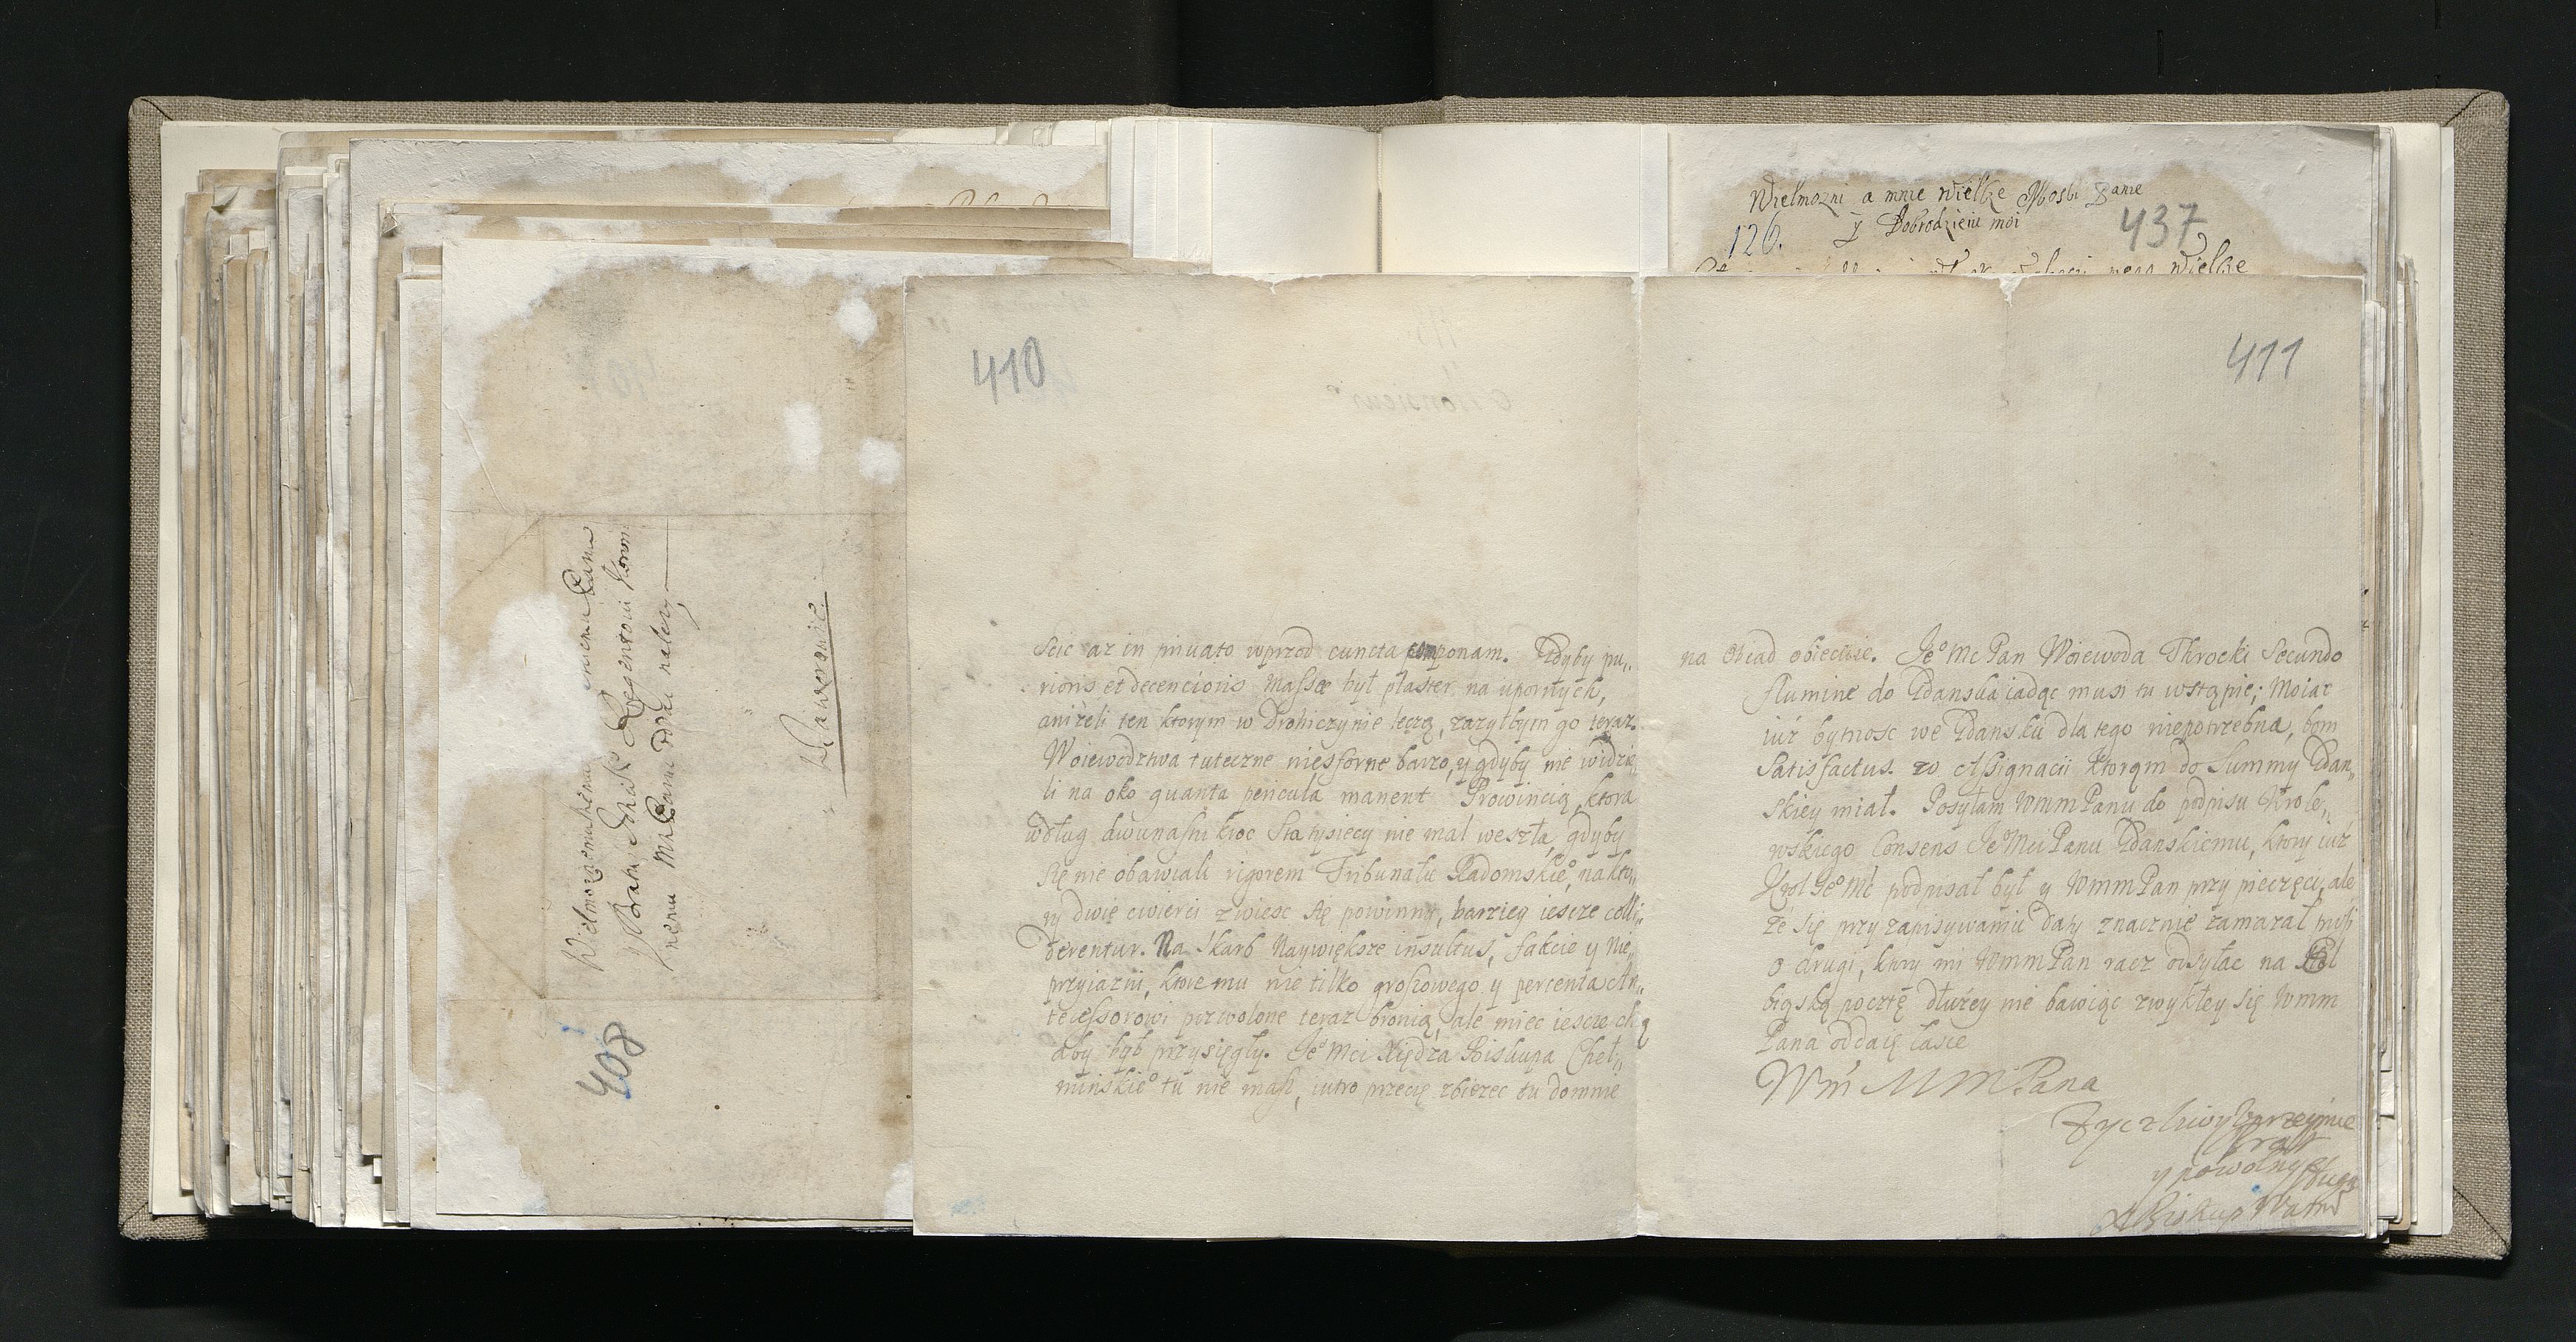 Wielmożni a mnie Wielke Mosbi Panie
y Dobrodzieiu moi
126.
437
Wielke
memu Panu
Bratu Regentowi Koron
nemu MśPanu należy
Jaworowie.
408
410
Scic aż in priuato wprzod cuncta componam. Gdyby pu„
rioris et decencioris Massæ był plaster na upornych,
aniżeli ten ktorym w Drohiczynie leczą, zażyłbym go teraz.
Woiewodztwa tuteczne niesforne barzo, y gdyby nie widzie„
li na oko quanta pericula manent Prowincią, ktora
wdług dwunastu kroc Sta tysięcy nie mal weszła, gdyby
się nie obawiali rigorem Tribunału Radomskieº, na kto„
ry dwie cwierci zwiesc się powinny, barzieg iescze colli„
derentur. Na Skarb Naywiększe insultus, fakcie y nie„
przyiazni, ktore mu nie tilko groszowego y percenta An„
tecessorowi pozwolone teraz bronią, ale miec iescze chcą
aby był przysięgły. Jeº Mci Xiędza Biskupa Cheł„
mińskieº tu nie masz, iutro przecię zbieżec tu do mnie
411
na obiad obiecuie. Jeº Mc Pan Woiewoda Throcki Secundo
flumine do Gdanska iadąc musi tu wstąpic; Moiaż
iuż bytnosc we Gdansku dla tego niepotrzebna, bom
Satisfactus w Assignacii ktorąm do Summy Gdan„
skiey miał. Posyłam WmmPanu do podpisu Krole„
wskiego Consens JeºMci Panu Gdanskiemu, ktory iuż
Krol Jeº Mć podpisał był y WmmPan przy pieczęci, ale
że się przy zapisywaniu daty znacznie zamazał proszę
o drugi, ktory mi WmmPan racz odsyłac na
biąską pocztę dłużey nie bawiąc zwykłey się Wmm
Pana oddaię łasce
Wm MMPana
Zyczliwy Uprzeymie
Bratt
y powolny Sługa
XBiskup Warm